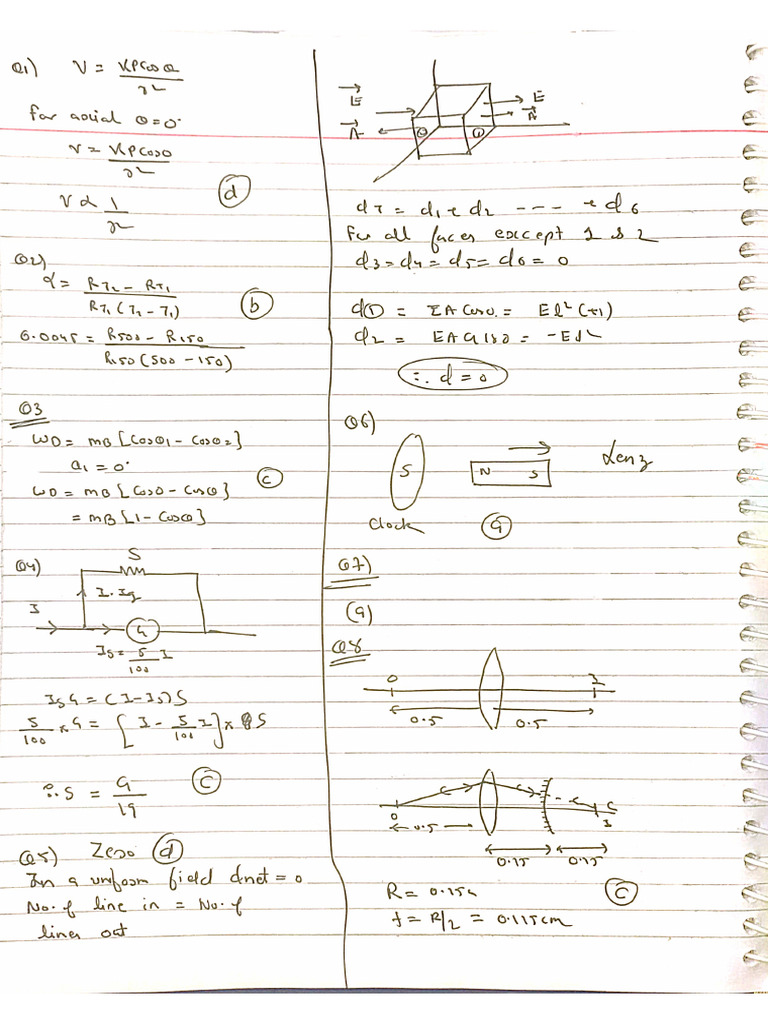 Q1) V = KPCosθ
r²
for axial θ=0°
V = KPCos0
r²
V ∝ 1
r²
(d)
Q2)
α = RT2 - RT1
RT1 (T2 - T1)
(b)
0.0045 = R500 - R150
R150 (500 - 150)
Q3
WD = mB [Cosθ1 - Cosθ2]
θ1 = 0°
WD = mB [Cos0 - Cosθ]
(c)
= mB [1 - Cosθ]
Q4)
S
I-Ig
I
G
Is = 5 I
100
IsG = (I-Is)S
5 × G = [I - 5 I] × S
100 100
∴ S = G
19
(C)
Q5) Zero (d)
In a uniform field φnet = 0
No. of line in = No. of
lines out
E
A
E
A
② ①
φT = φ1 + φ2 ---- + φ6
For all faces except 1 & 2
φ3 = φ4 = φ5 = φ6 = 0
φ① = EACos0 = El² (+1)
φ2 = EA Cos180 = -El²
∴ φ = 0
Q6)
S
N S
Lenz
Clock
(a)
Q7)
(a)
Q8
O I
0.5 0.5
O C
I
0.5
0.15 0.15
R = 0.15
(C)
f = R/2 = 0.115cm